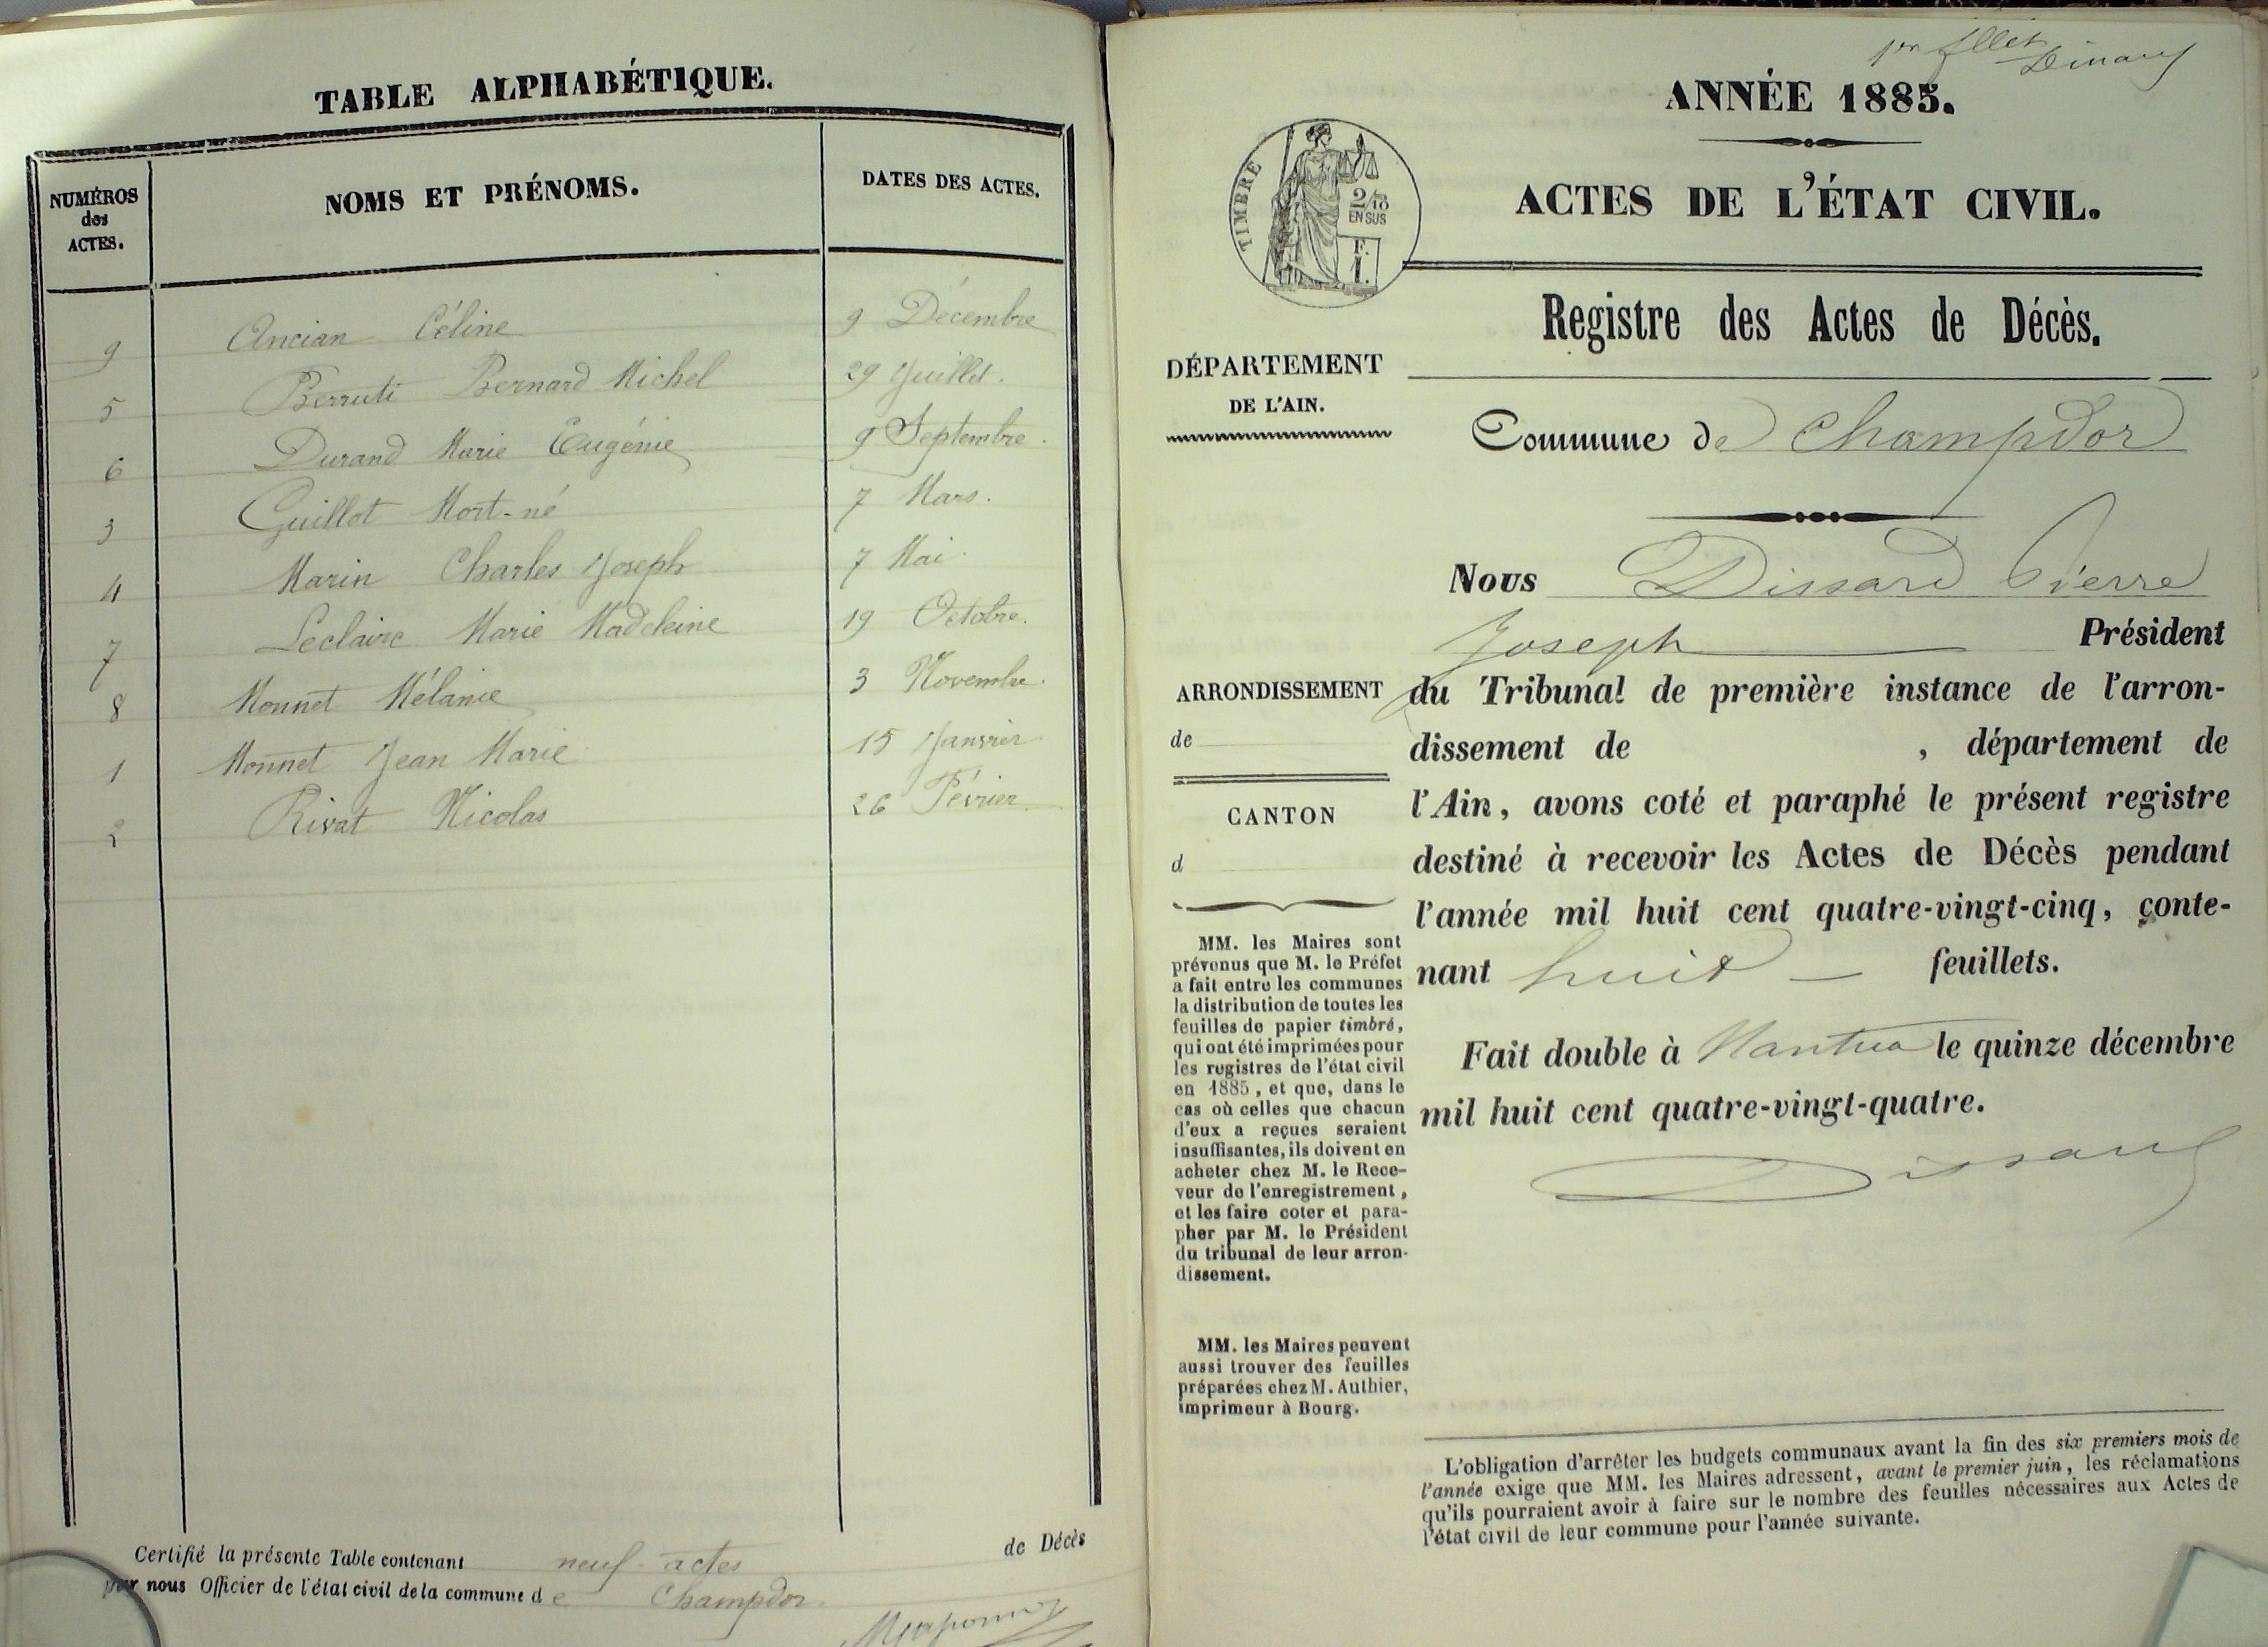 TABLE ALPHABÉTIQUE.
NUMÉROS des ACTES.
NOMS ET PRÉNOMS.
DATES DES ACTES.
9 Ancian Céline 9 Décembre
5 Berruti Bernard Michel 29 Juillet.
6 Durand Marie Eugénie 9 Septembre.
3 Guillot Mort-né 7 Mars.
4 Marin Charles Joseph 7 Mai.
7 Leclaire Marie Madeleine 19 Octobre.
8 Monnet Mélanie 3 Novembre.
1 Monnet Jean Marie 15 Janvier
2 Rivat Nicolas 26 Février.
Certifié la présente Table contenant neuf actes de Décès
par nous Officier de l'état civil de la commune de Champdor.
1er
ANNÉE 1885.
TIMBRE
2/10
EN SUS
F.
1.
ACTES DE L'ÉTAT CIVIL.
Registre des Actes de Décès.
DÉPARTEMENT
DE L'AIN.
Commune de Champdor
Nous Dissard Pierre
Joseph Président
du Tribunal de première instance de l'arron-
dissement de , département de
l'Ain, avons coté et paraphé le présent registre
destiné à recevoir les Actes de Décès pendant
l'année mil huit cent quatre-vingt-cinq, conte-
nant huit feuillets.
Fait double à Nantua le quinze décembre
mil huit cent quatre-vingt-quatre.
Dissard
ARRONDISSEMENT
de
CANTON
d
MM. les Maires sont
prévenus que M. le Préfet
a fait entre les communes
la distribution de toutes les
feuilles de papier timbré,
qui ont été imprimées pour
les registres de l'état civil
en 1885, et que, dans le
cas où celles que chacun
d'eux a reçues seraient
insuffisantes, ils doivent en
acheter chez M. le Rece-
veur de l'enregistrement,
et les faire coter et para-
pher par M. le Président
du tribunal de leur arron-
dissement.
MM. les Maires peuvent
aussi trouver des feuilles
préparées chez M. Authier,
imprimeur à Bourg.
L'obligation d'arrêter les budgets communaux avant la fin des six premiers mois de
l'année exige que MM. les Maires adressent, avant le premier juin, les réclamations
qu'ils pourraient avoir à faire sur le nombre des feuilles nécessaires aux Actes de
l'état civil de leur commune pour l'année suivante.